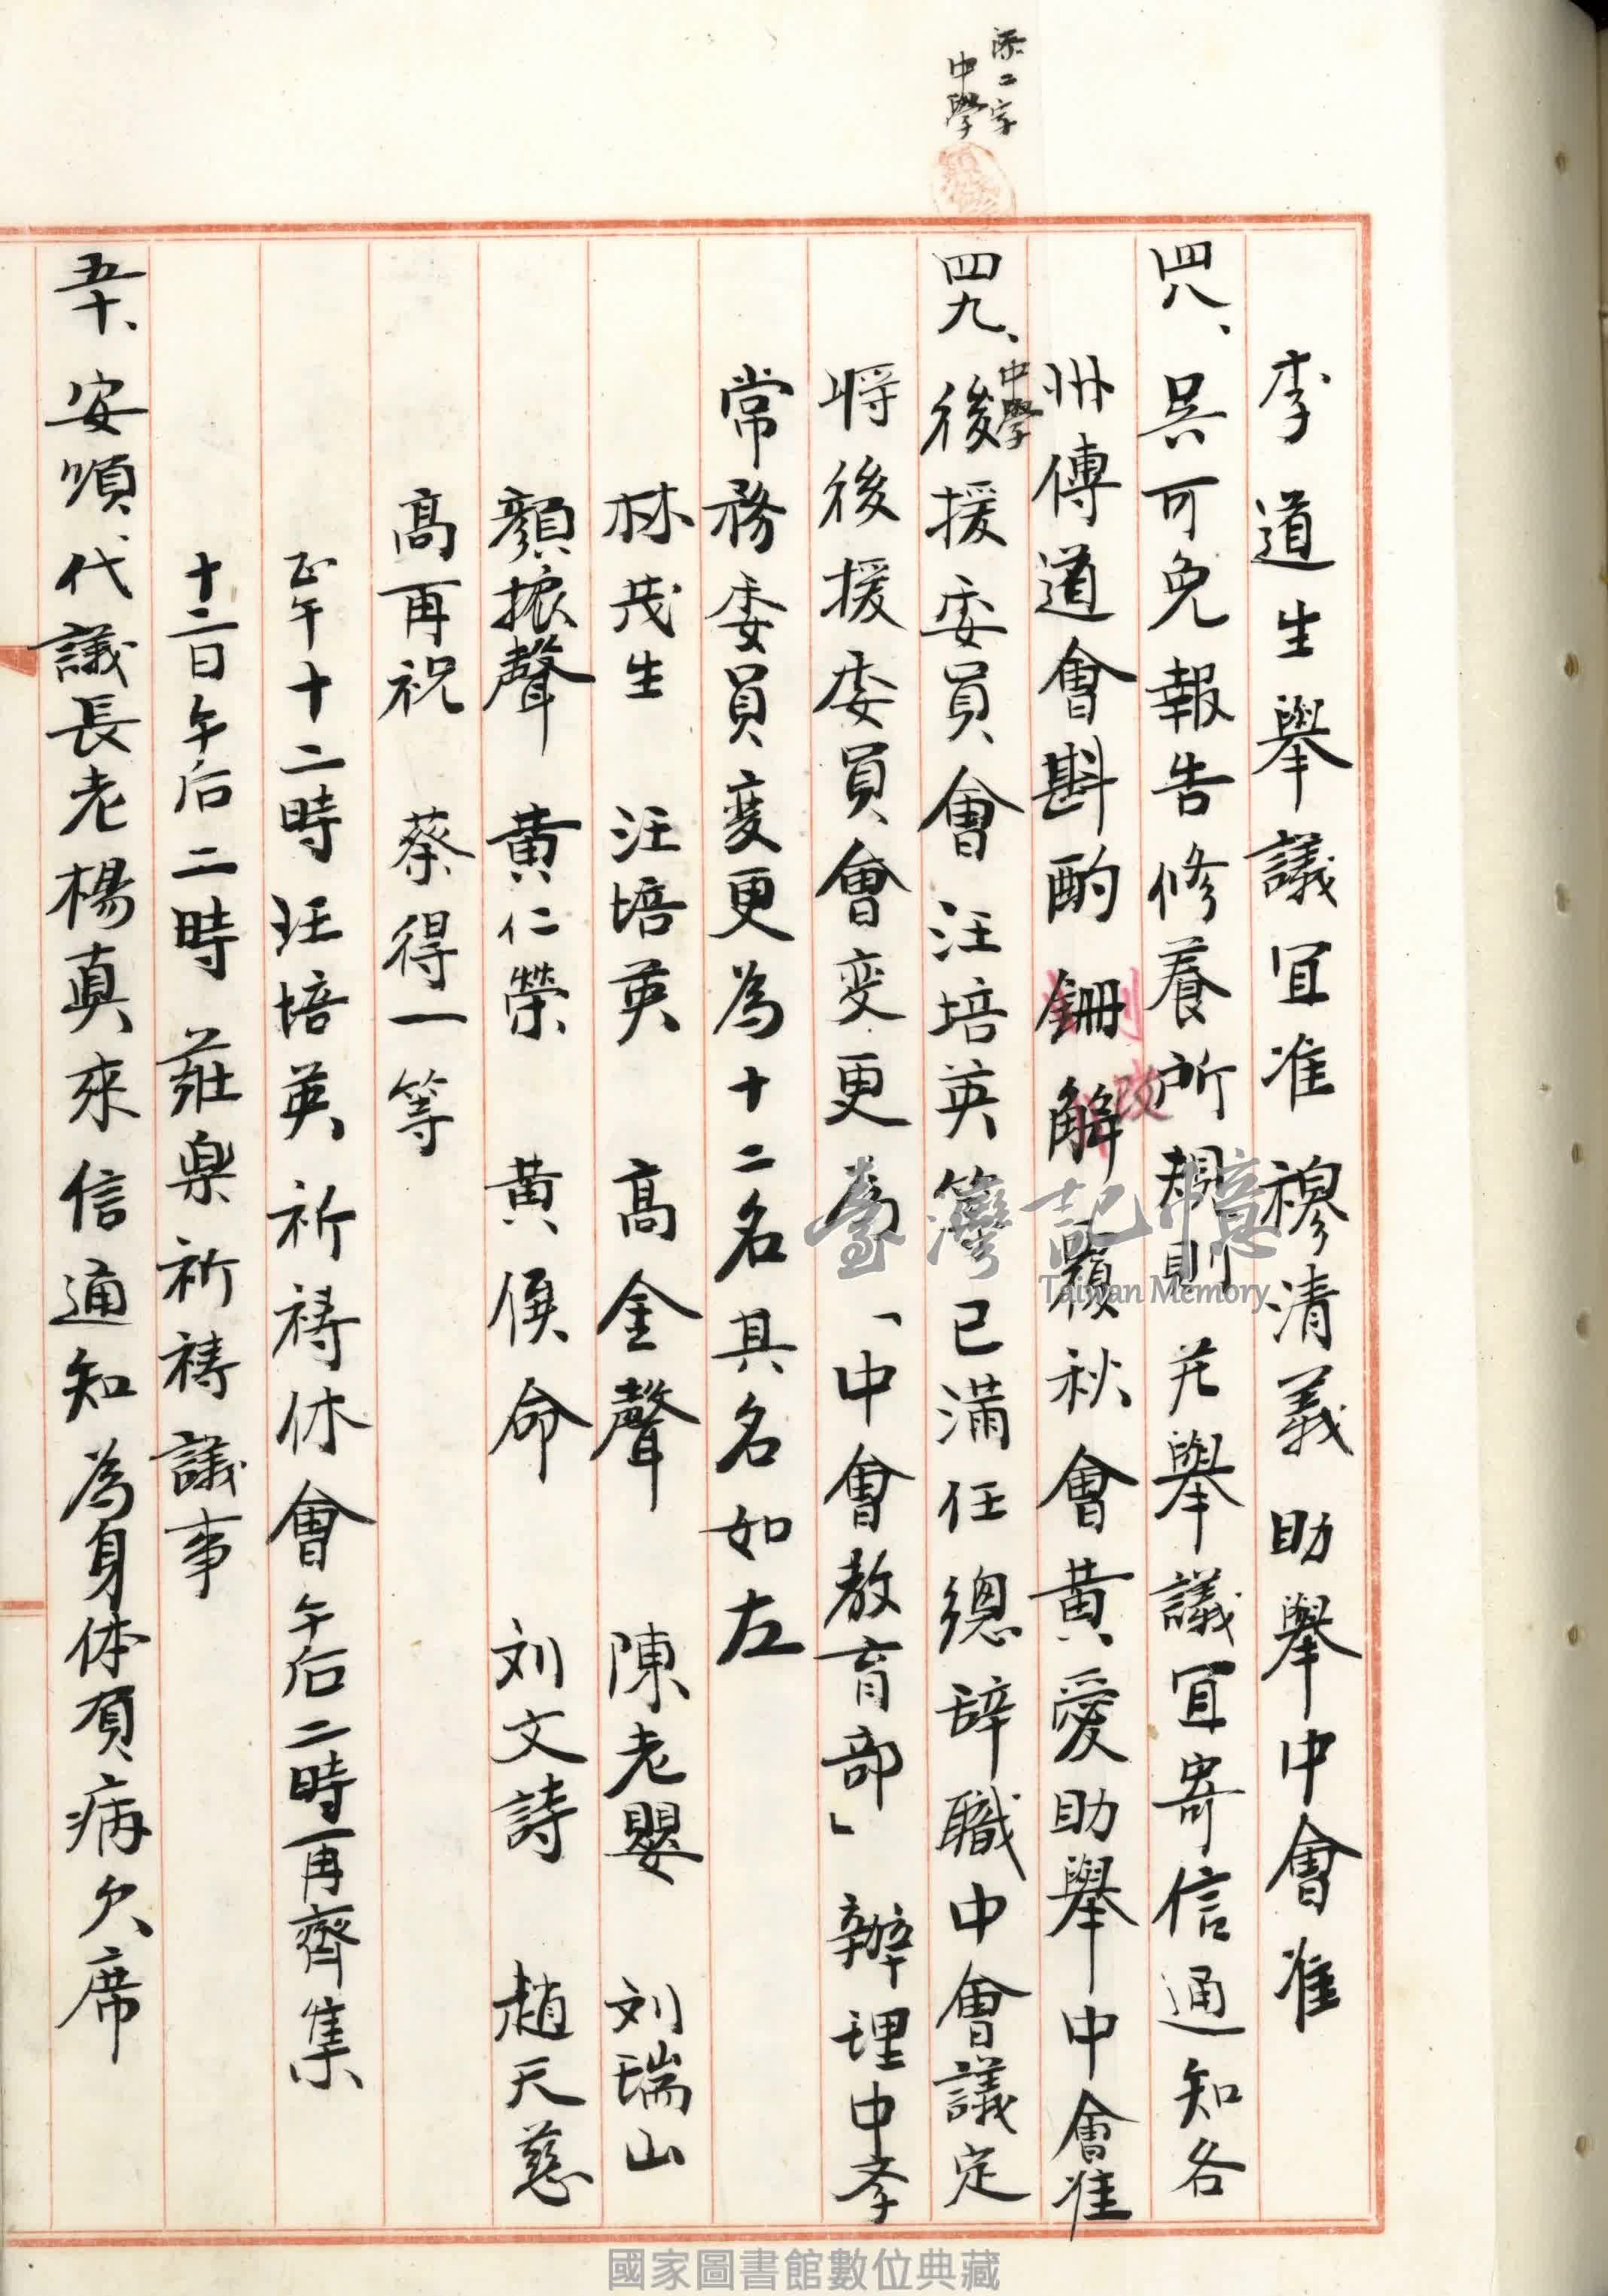 添二字
中學
李道生舉議宜准穆清義助舉中會准
四八、吳可免報告修養所規則并舉議宜寄信通知各
州傳道會斟酌鉚解覆秋會黃愛助舉中會准
刪改
四九、中學後援委員會汪培英等已滿任總辞職中會議定
將後援委員會変更為「中會教育部」辦理中学
常務委員変更為十二名其名如左
林茂生 汪培英 高金聲 陳老嬰 刘瑞山
顏振聲 黃仁榮 黃俟命 刘文詩 趙天慈
高再祝 蔡得一等
正午十二時汪培英祈禱休會午后二時再齊集
十二日午后二時 莊楽祈禱議事
五十、安順、代議長老楊真來信通知為身体有病欠席
臺灣記憶
Taiwan Memory
國家圖書館數位典藏